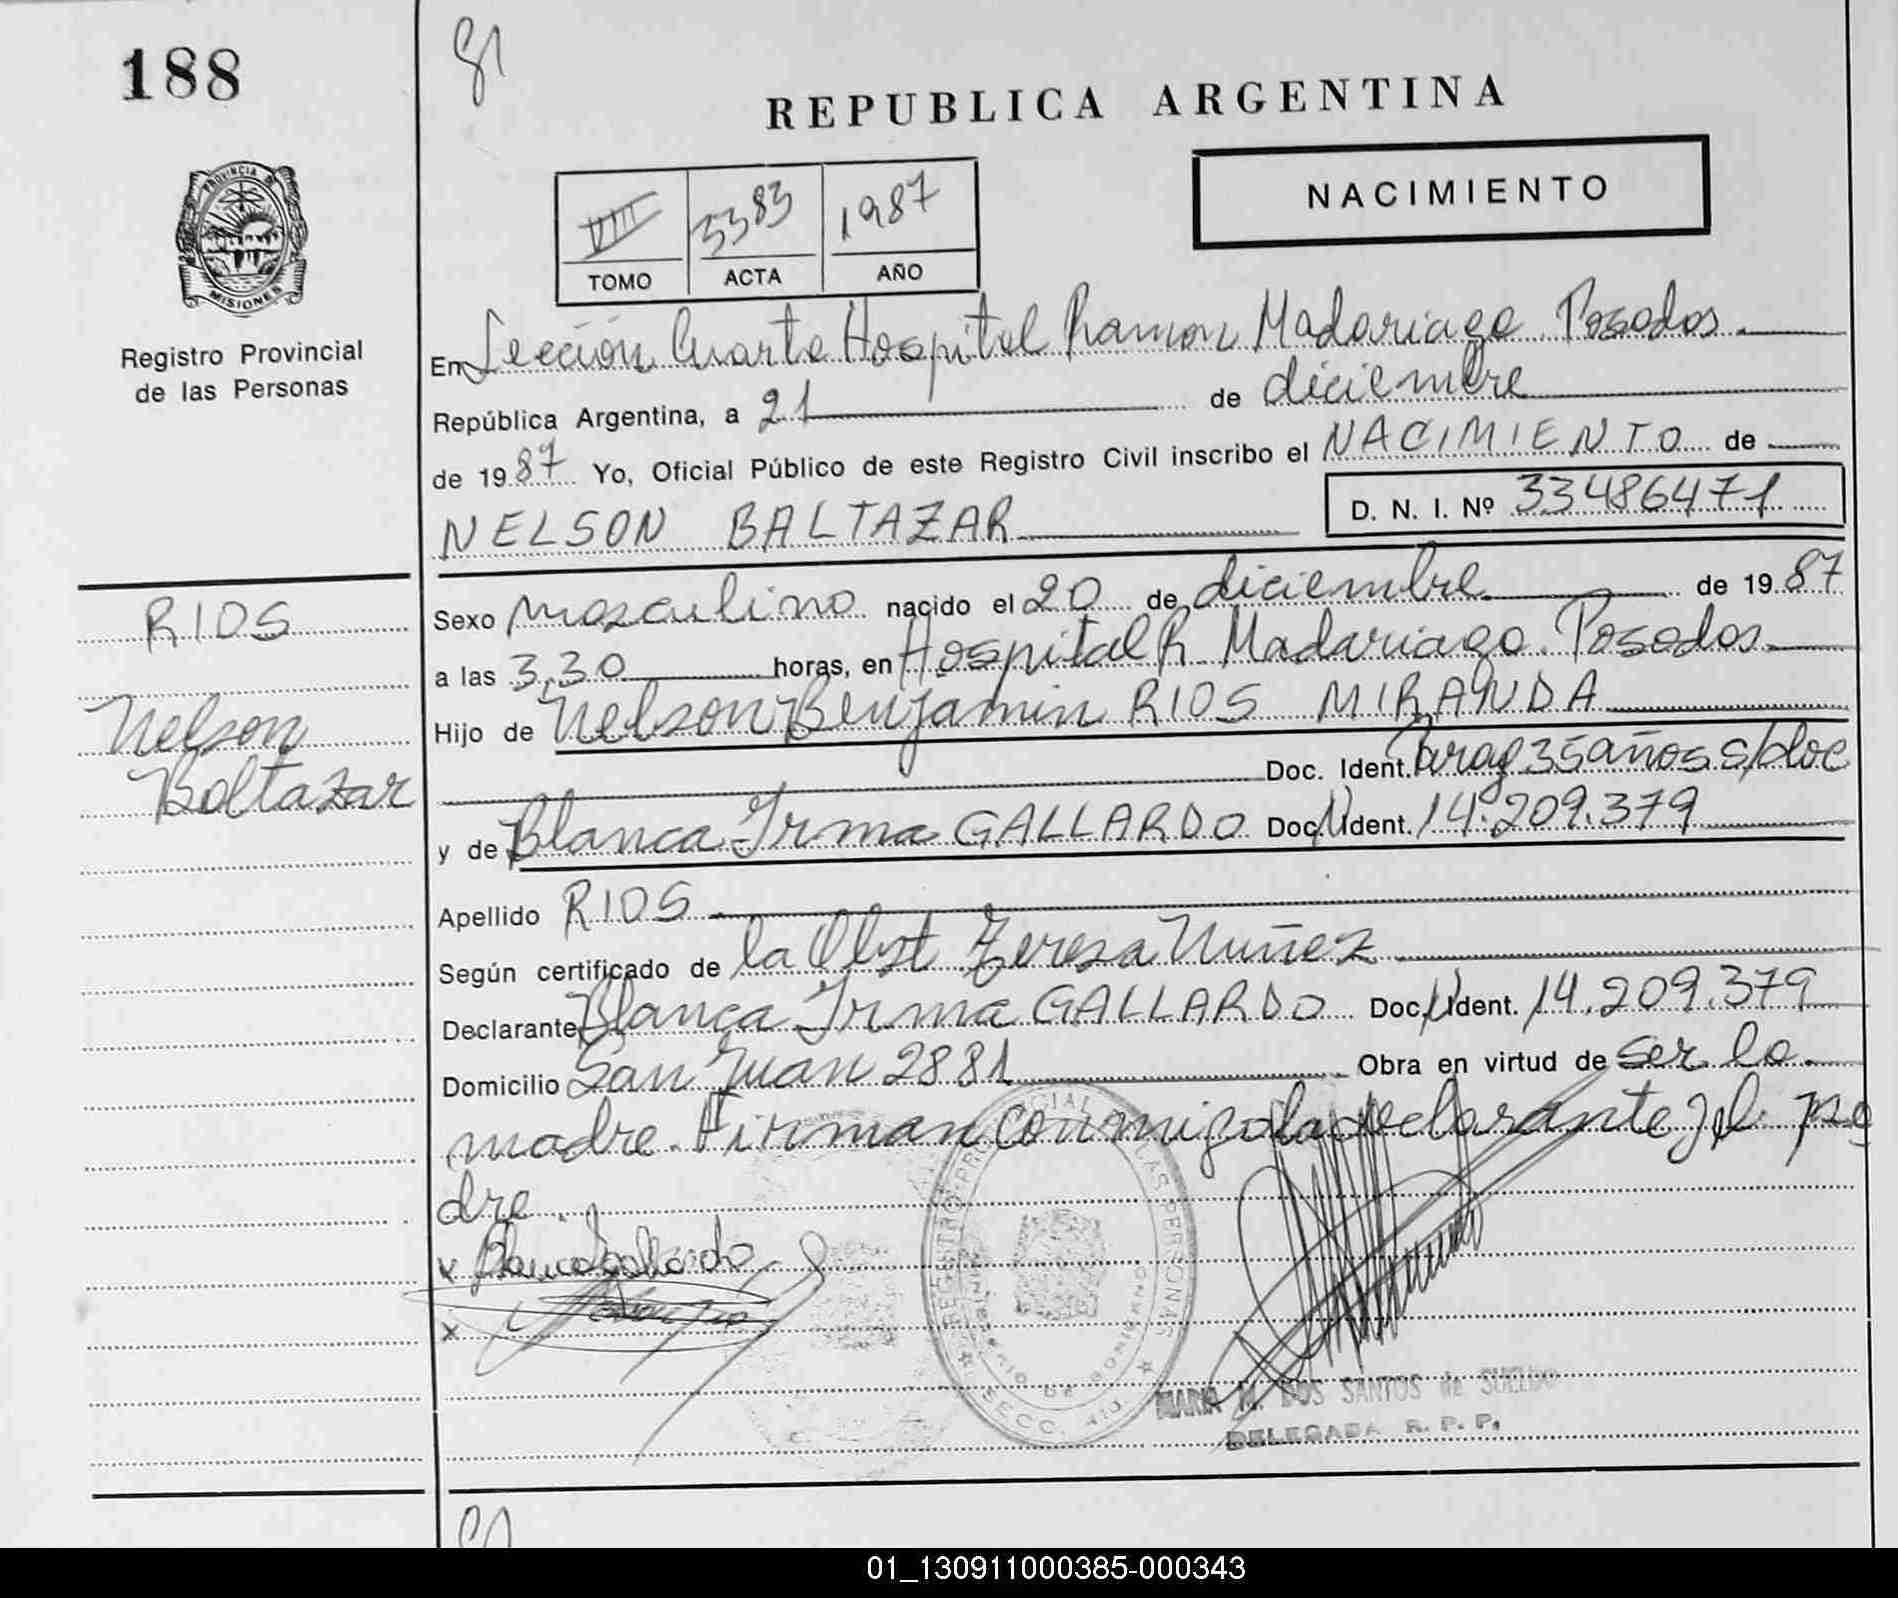 188
REPUBLICA ARGENTINA
NACIMIENTO
VIII 3383 1987
TOMO ACTA AÑO
PROVINCIA DE
MISIONES
Registro Provincial
de las Personas
En Sección Cuarta Hospital Ramon Madariaga Posadas
República Argentina, a 21 de diciembre
de 1987 Yo, Oficial Público de este Registro Civil inscribo el NACIMIENTO de
NELSON BALTAZAR D. N. I. Nº 33486471
RIOS
Nelson
Baltazar
Sexo masculino nacido el 20 de diciembre de 1987
a las 3,30 horas, en Hospital R. Madariaga. Posadas
Hijo de Nelson Benjamin RIOS MIRANDA
Doc. Ident. Parag 35 años s/doc
y de Blanca Irma GALLARDO Doc. Ident. 14.209.379
Apellido RIOS
Según certificado de la Obst Teresa Nuñez
Declarante Blanca Irma GALLARDO Doc. Ident. 14.209.379
Domicilio San Juan 2881 Obra en virtud de ser la
madre. Firman conmigo la declarante y el pa
dre.
x Blanca Gallardo
x
REGISTRO PROVINCIAL DE LAS PERSONAS
MINISTERIO DE GOBIERNO
SECC. 4ta
MARIA M. DOS SANTOS de SUELDO
DELEGADA R. P. P.
01_130911000385-000343